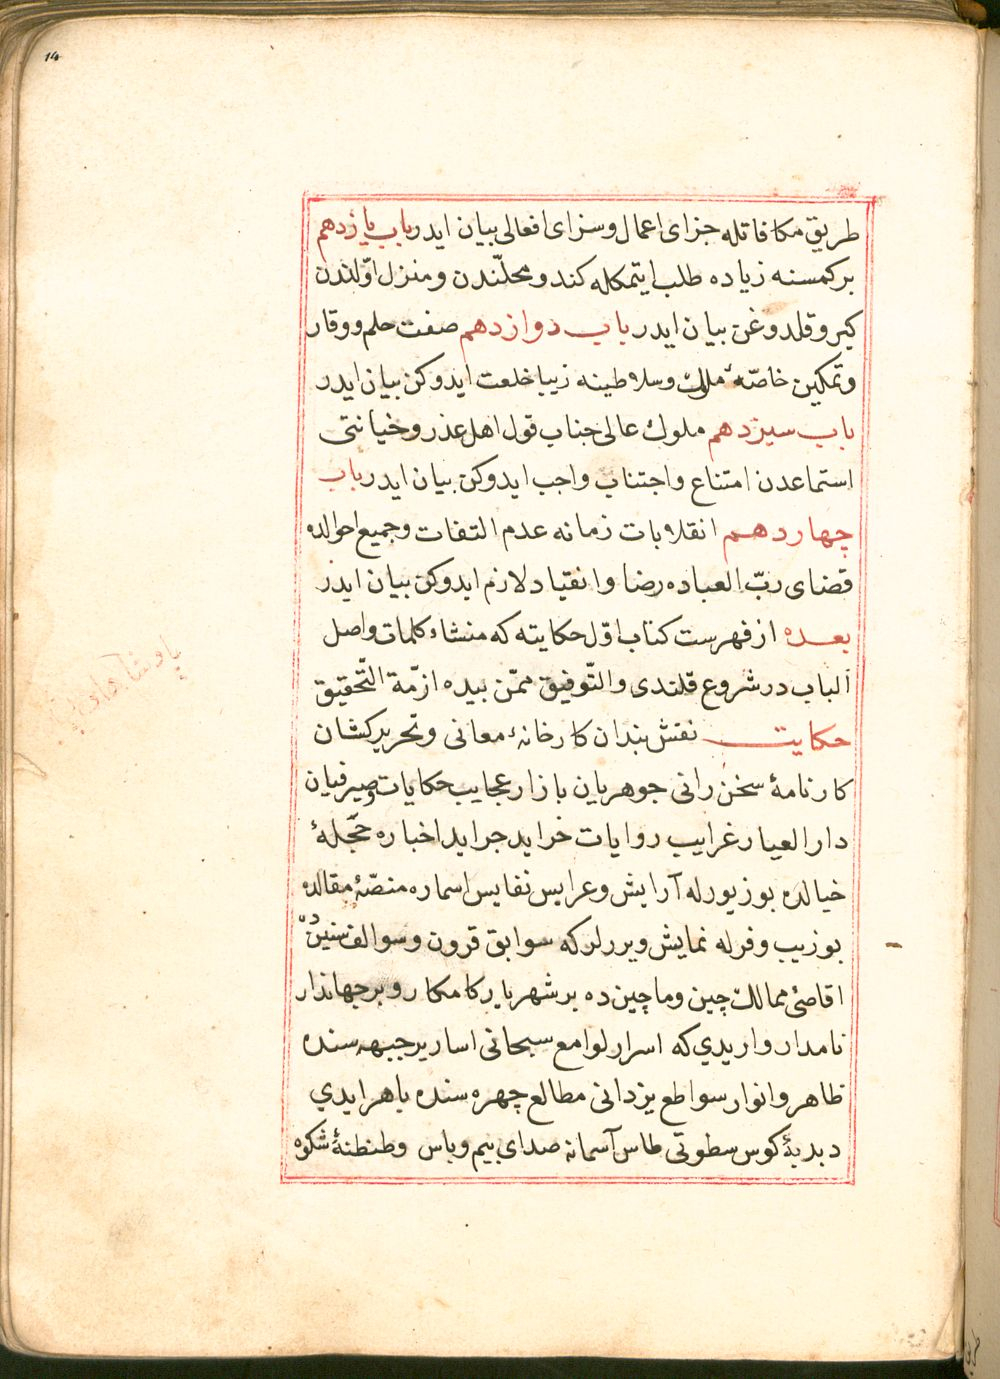 14
طریق مکافاتله جزای اعمال و سزای افعالی بیان ایدر باب یازدهم
بر کمسنه زیاده طلب ایتمکله کندو محلّندن و منزل اوّلندن
کیرو قلدوغن بیان ایدر باب دوازدهم صفت حلم و وقار
و تمکین خاصّهٔ ملوک و سلاطینه زیبا خلعت ایدوکن بیان ایدر
باب سیزدهم ملوک عالی جناب قول اهل غدر و خیانتی
استماعدن امتناع و اجتناب واجب ایدوکن بیان ایدر باب
چهاردهم انقلابات زمانه عدم التفات و جمیع احوالده
قضای ربّ العباده رضا و انقیاد لازم ایدوکن بیان ایدر
بعده از فهرست کتاب اوّل حکایته که منشاء کلمات و اصل
الباب در شروع قلندی والتّوفیق ممّن بیده ازمّة التّحقیق
حکایت نقش بندان کارخانهٔ معانی و تحریر کشان
کارنامهٔ سخن رانی جوهریان بازار عجایب حکایات و صیرفیان
دار العیار غرایب روایات خراید جراید اخباره حجلهٔ
خیالده بو زیورله آرایش و عرایس نفایس اسماره منصّهٔ مقالده
بو زیب و فرله نمایش ویررلر که سوابق قرون و سوالف سنین ده
اقاصیٔ ممالک چین و ماچین ده بر شهریار کامکار و بر جهاندار
نامدار واریدی که اسرار لوامع سبحانی اساریر جبهه سنده
ظاهر و انوار سواطع یزدانی مطالع چهره سنده باهر ایدی
دبدبهٔ کوس سطوتی طاس آسمانه صدای بیم و باس و طنطنهٔ شکوه